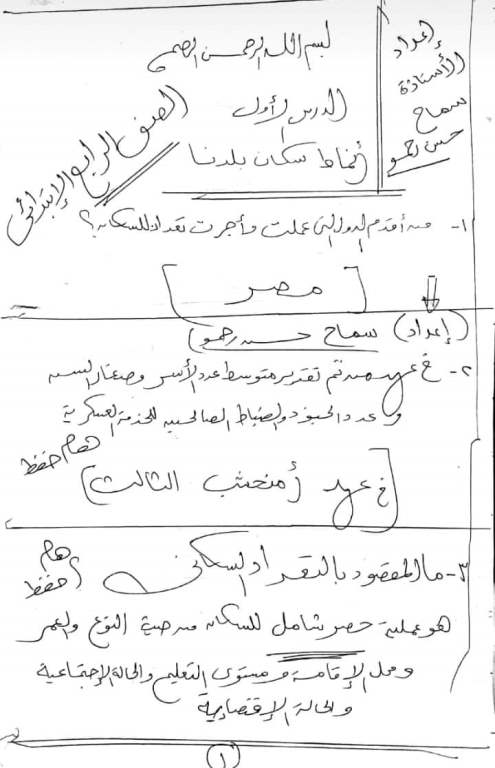 بسم الله الرحمن الرحيم
إعداد
الأستاذة
سماح
حسن رحمو
الصف الرابع الإبتدائي
الدرس الأول
أنماط سكان بلدنا
١- من أقدم الدول التي عملت وأجرت تعداد للسكان؟
[مصر]
(إعداد) سماح حسن رحمو
٢- في عهد من تم تقدير متوسط عدد الأسر وصغار السن
وعدد الجنود والضباط الصالحين للخدمة العسكرية
هام حفظ
[في عهد أمنحتب الثالث]
هام
حفظ
٣- ما المقصود بالتعداد السكاني
هو عملية حصر شامل للسكان من حيث النوع والعمر
ومحل الإقامة ومستوى التعليم والحالة الإجتماعية
والحالة الإقتصادية
١